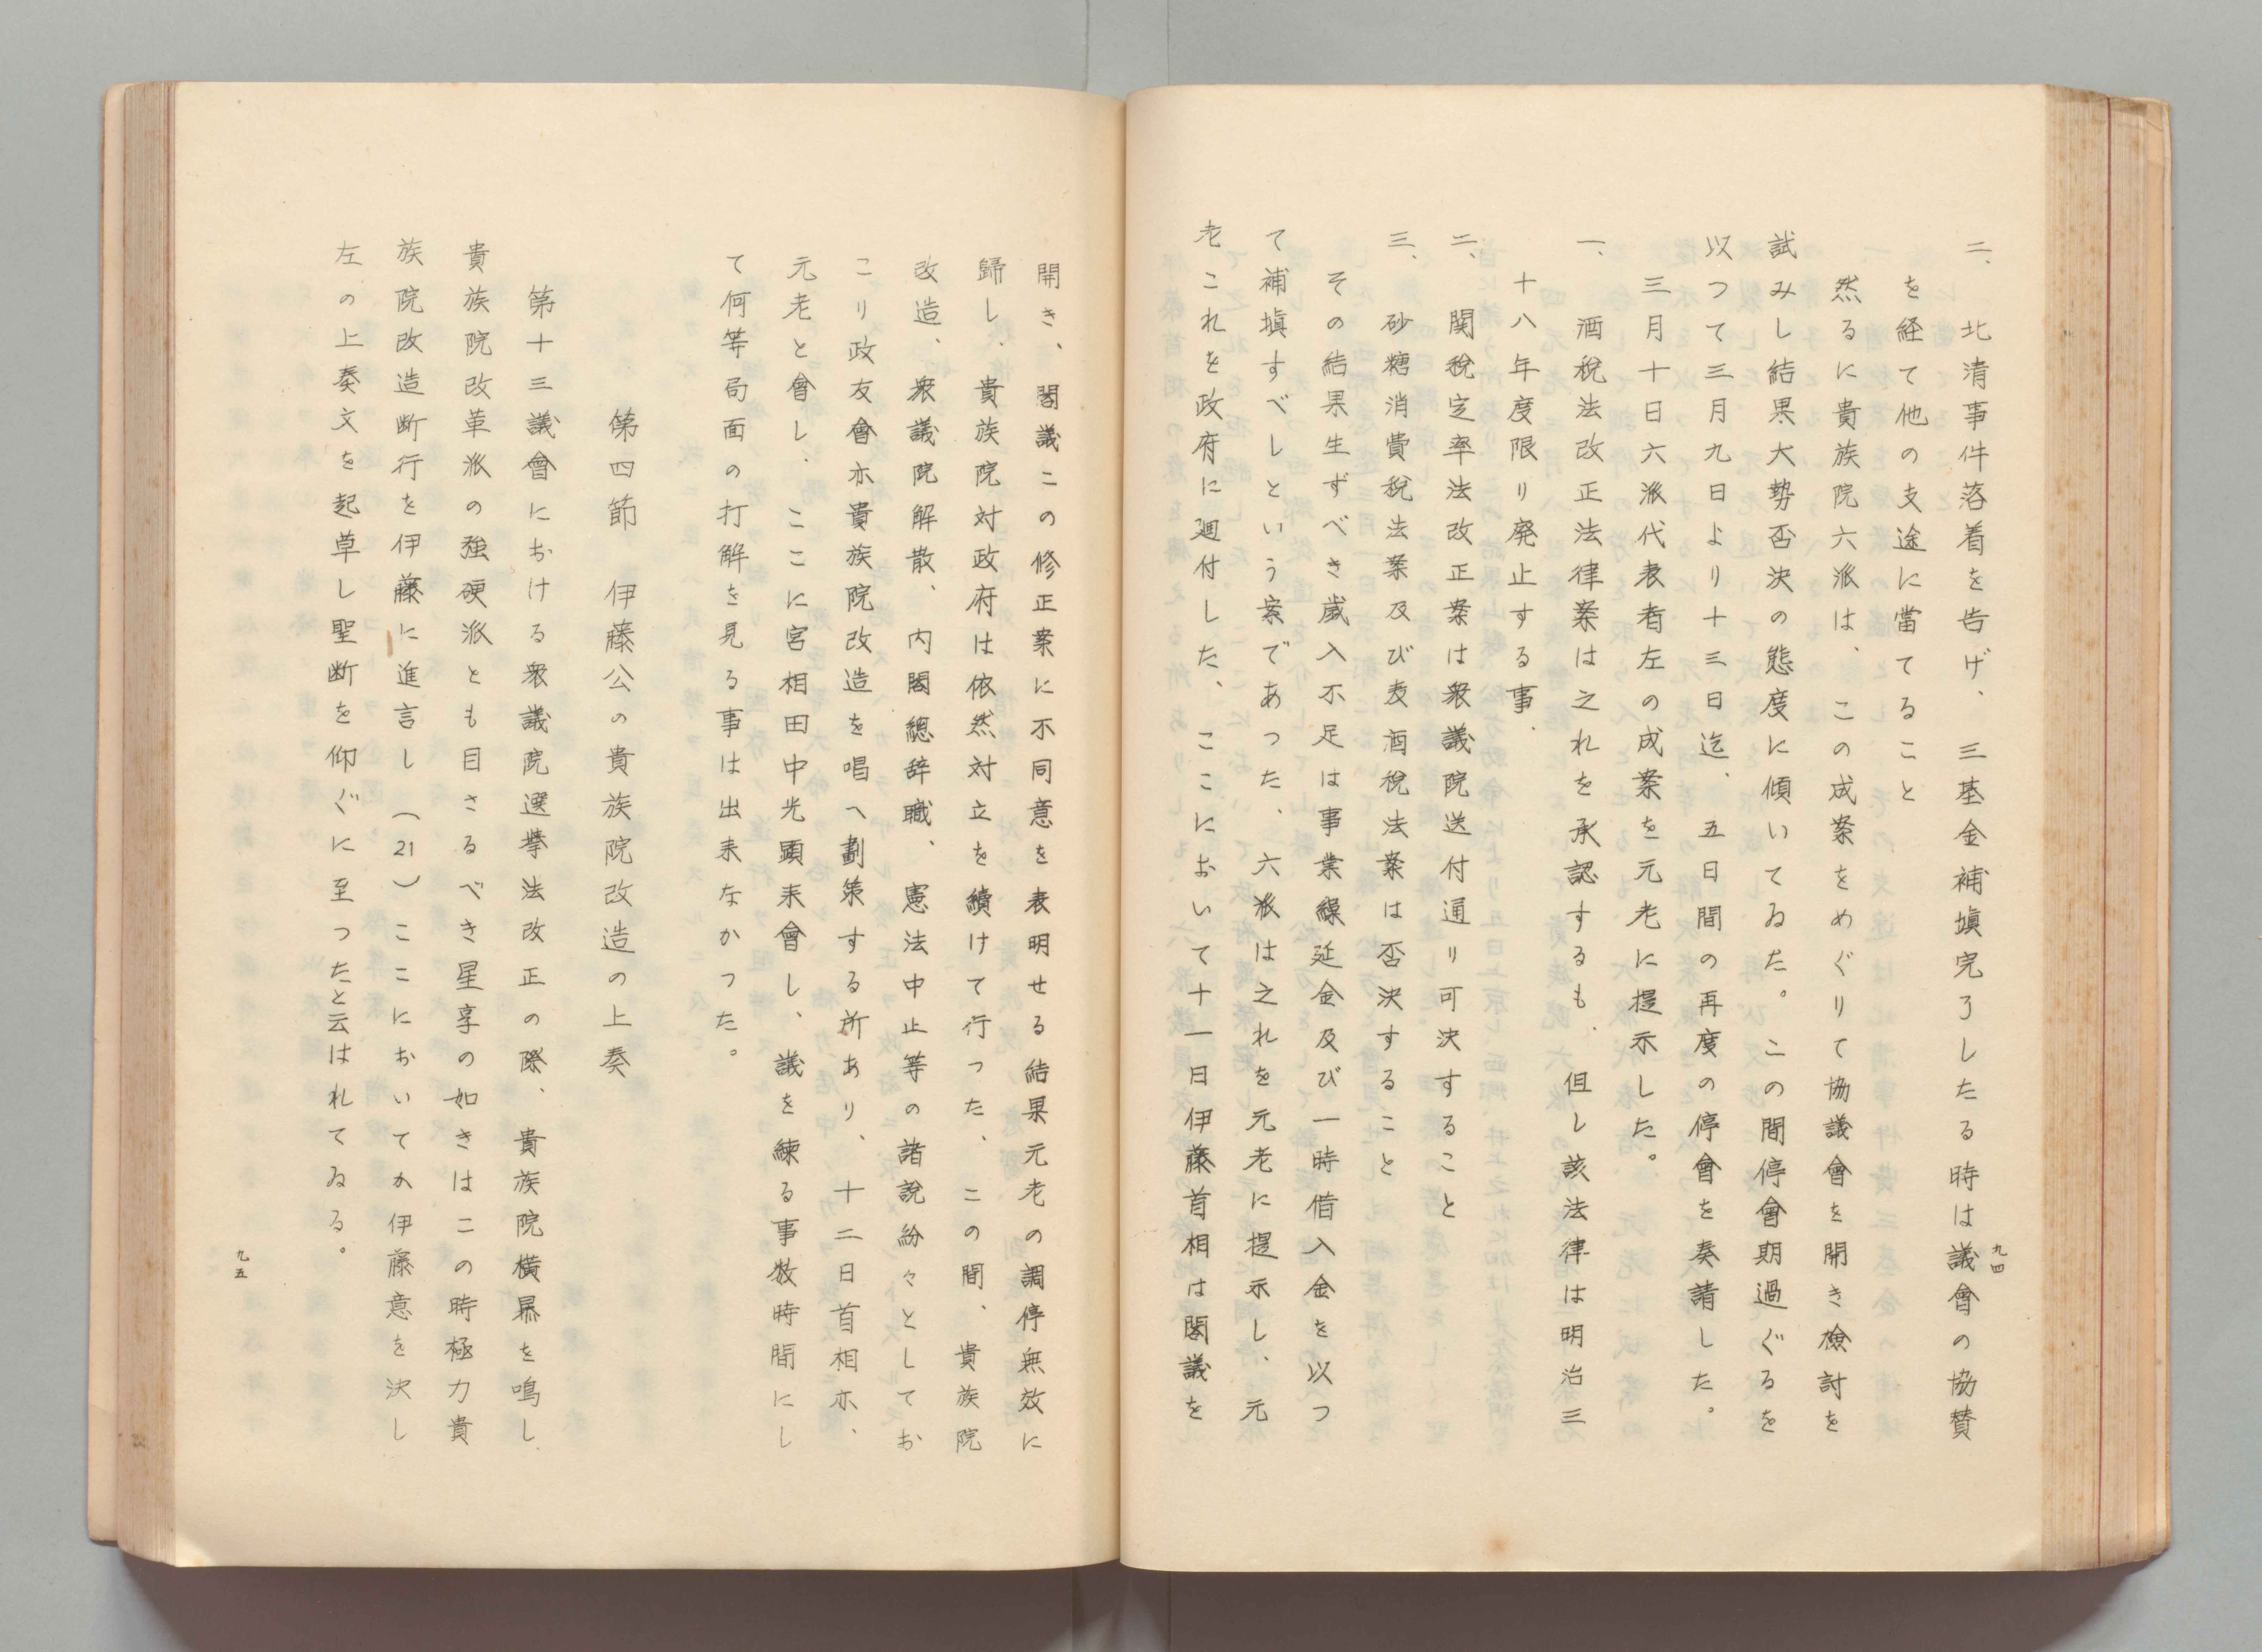 二、北清事件落着を告げ、三基金補塡完了したる時は議會の協賛
を経て他の支途に當てること
然るに貴族院六派は、この成案をめぐりて協議會を開き検討を
試みし結果大勢否決の態度に傾いてゐた。この間停會期過ぐるを
以つて三月九日より十三日迄、五日間の再度の停會を奏請した。
三月十日六派代表者左の成案を元老に提示した。
一、酒税法改正法律案は之れを承認するも、但し該法律は明治三
十八年度限り廃止する事.
二、関税定率法改正案は衆議院送付通り可決すること
三、砂糖消費税法案及び麦酒税法案は否決すること
その結果生ずべき歳入不足は事業繰延金及び一時借入金を以つ
て補塡すべしという案であった、六派は之れを元老に提示し、元
老これを政府に廻付した、ここにおいて十一日伊藤首相は閣議を
九四
開き、閣議この修正案に不同意を表明せる結果元老の調停無效に
歸し、貴族院対政府は依然対立を續けて行った、この間、貴族院
改造、衆議院解散、内閣總辞職、憲法中止等の諸說紛々としてお
こり政友會亦貴族院改造を唱へ劃策する所あり、十二日首相亦、
元老と會し、ここに宮相田中光顕来會し、議を練る事数時間にし
て何等局面の打解を見る事は出来なかつた。
第四節　伊藤公の貴族院改造の上奏
第十三議會における衆議院選挙法改正の際、貴族院横暴を鳴し
貴族院改革派の強硬派とも目さるべき星享の如きはこの時極力貴
族院改造断行を伊藤に進言し（21）ここにおいてか伊藤意を決し
左の上奏文を起草し聖断を仰ぐに至つたと云はれてゐる。
九五